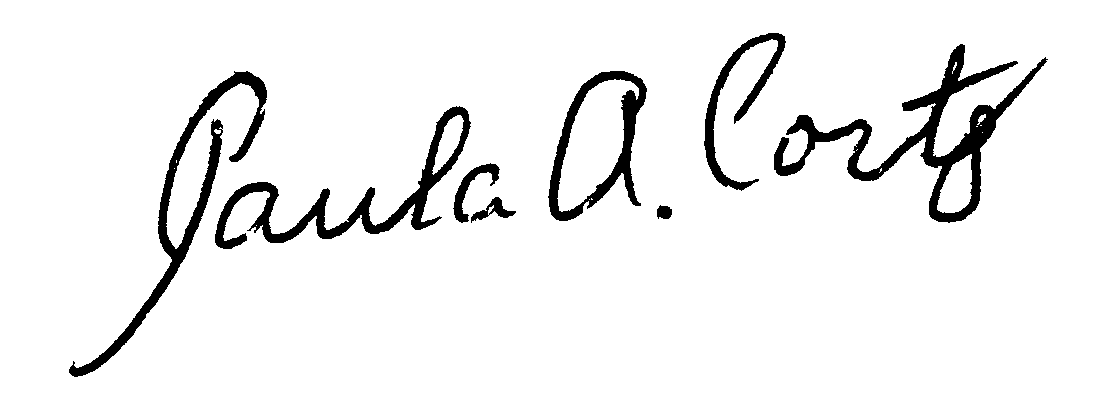 Paula A. Corty